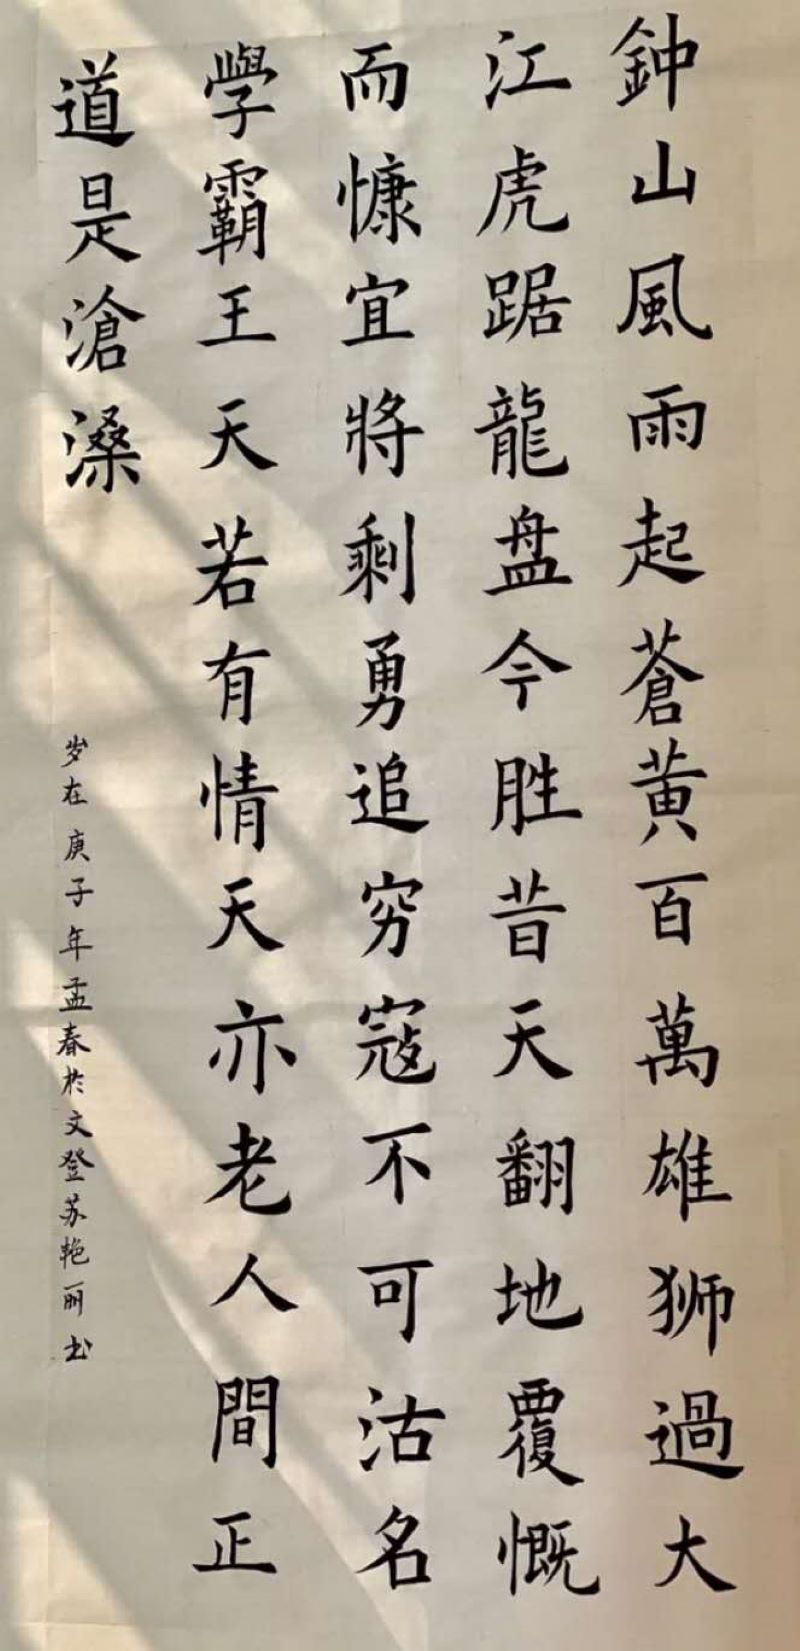 鈡山風雨起蒼黄百萬雄狮過大
江虎踞龍盘今胜昔天翻地覆慨
而慷宜将剩勇追穷寇不可沽名
學霸王天若有情天亦老人間正
道是滄桑
岁在庚子年孟春於文登苏艳丽书